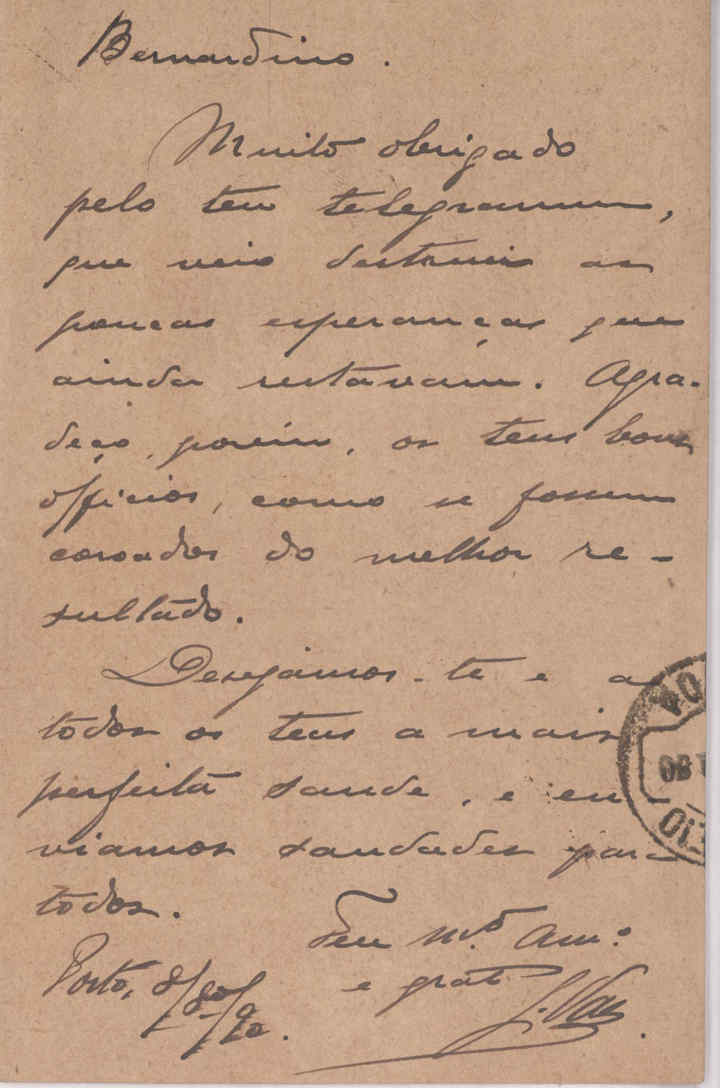 Bernardino.
Muito obrigado
pelo teu telegramma,
que veio destruir as
poucas esperanças que
ainda restavam. Agra-
deço, porém, os teus bons
officios, como se fossem
coroados do melhor re-
sultado.
Desejamos-te e a
todos os teus a mais
perfeita saude, e en-
viamos saudades para
todos.
Teu m.to am.o
e grato
Porto, 8/